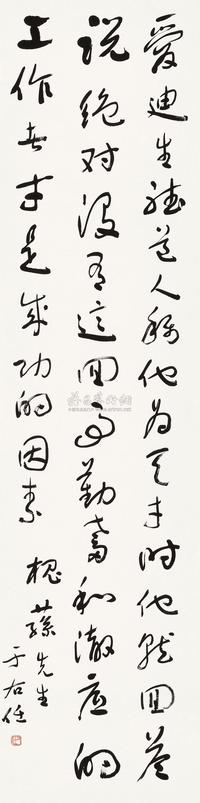 爱迪生听道人称他为天才时他就回答
说绝对没有这回事勤奋和澈底的
工作者才是成功的因素
槐荪先生
于右任